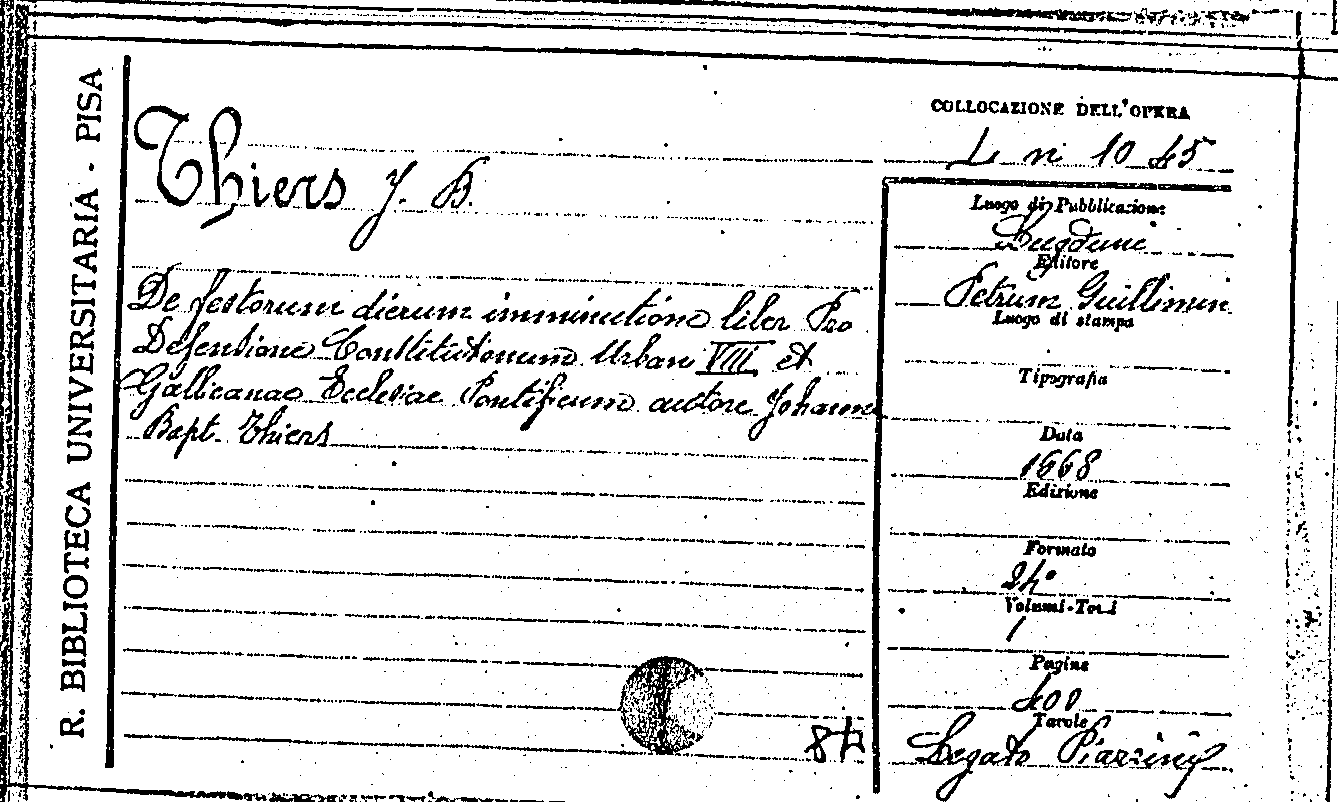 R. BIBLIOTECA UNIVERSITARIA - PISA
Thiers J. B.
De festorum dierum imminutione liber Pro
Defensione Constitutionum Urbani VIII et
Gallicanae Ecclesiae Pontificum autore Johanne
Bapt. Thiers
84
COLLOCAZIONE DELL'OPERA
L n 10 45
Luogo di Pubblicazione
Lugduni
Editore
Petrum Guillimin
Luogo di stampa
Tipografia
Data
1668
Edizione
Formato
24°
Volumi-Tomi
1
Pagine
400
Tavole
Legato Piazzini